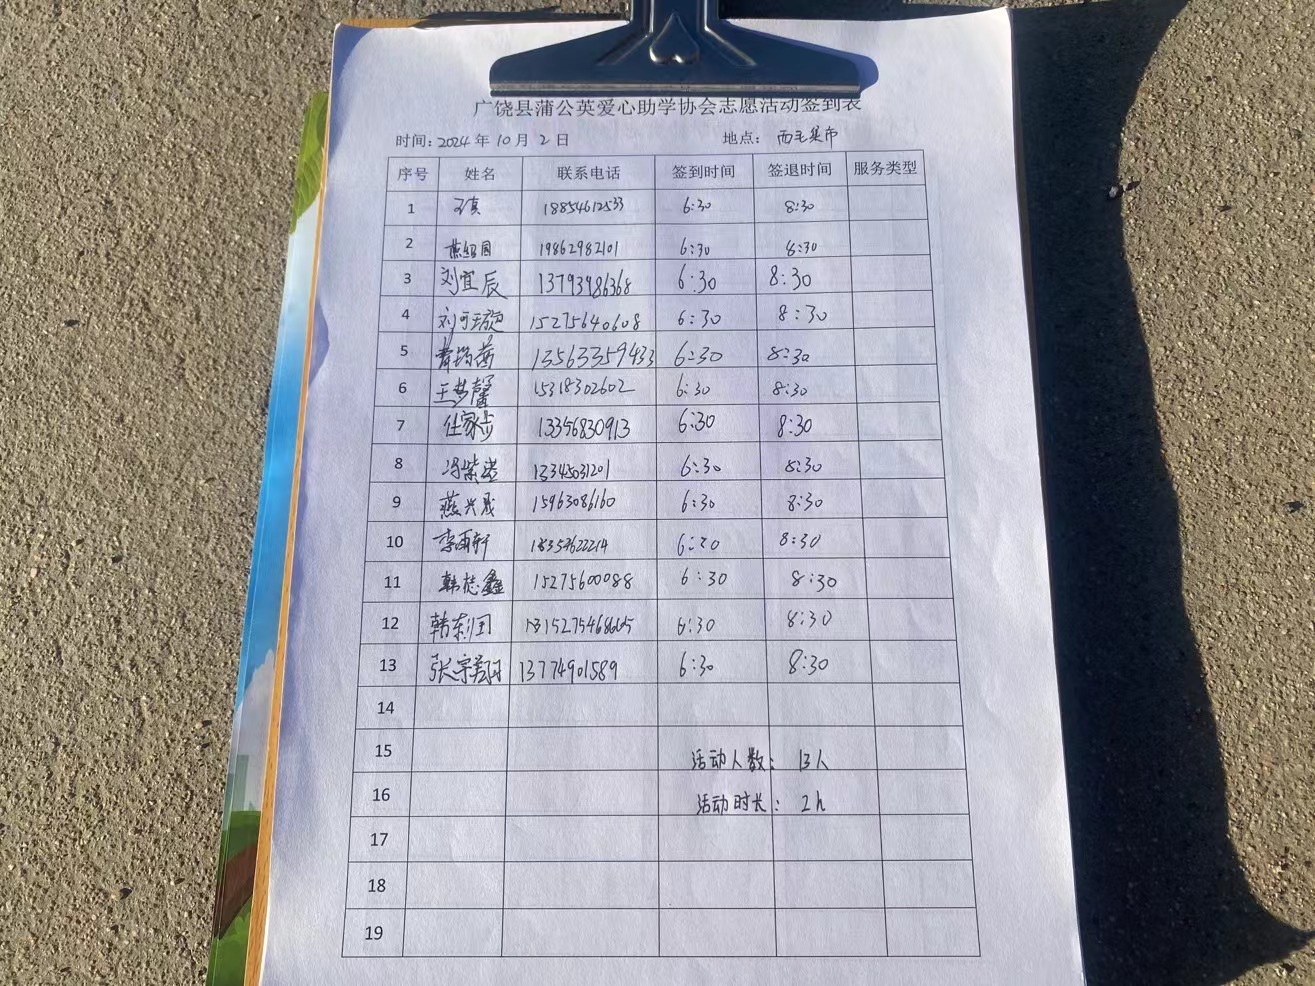 广饶县蒲公英爱心助学协会志愿活动签到表
时间: 2024 年 10 月 2 日 地点: 西毛集市
序号 姓名 联系电话 签到时间 签退时间 服务类型
1 18854612533 6:30 8:30
2 燕绍国 19862982101 6:30 8:30
3 刘宜辰 13793986368 6:30 8:30
4 刘可璇 15275640608 6:30 8:30
5 13563359433 6:30 8:30
6 王梦馨 15318302602 6:30 8:30
7 任家步 13356830913 6:30 8:30
8 冯紫 13345031201 6:30 8:30
9 燕兴晟 15963086160 6:30 8:30
10 李雨轩 18353622214 6:30 8:30
11 韩志鑫 15275600088 6:30 8:30
12 韩东国 6:30 8:30
13 张宗翔 13774901589 6:30 8:30
14
15 活动人数: 13人
16 活动时长: 2h
17
18
19